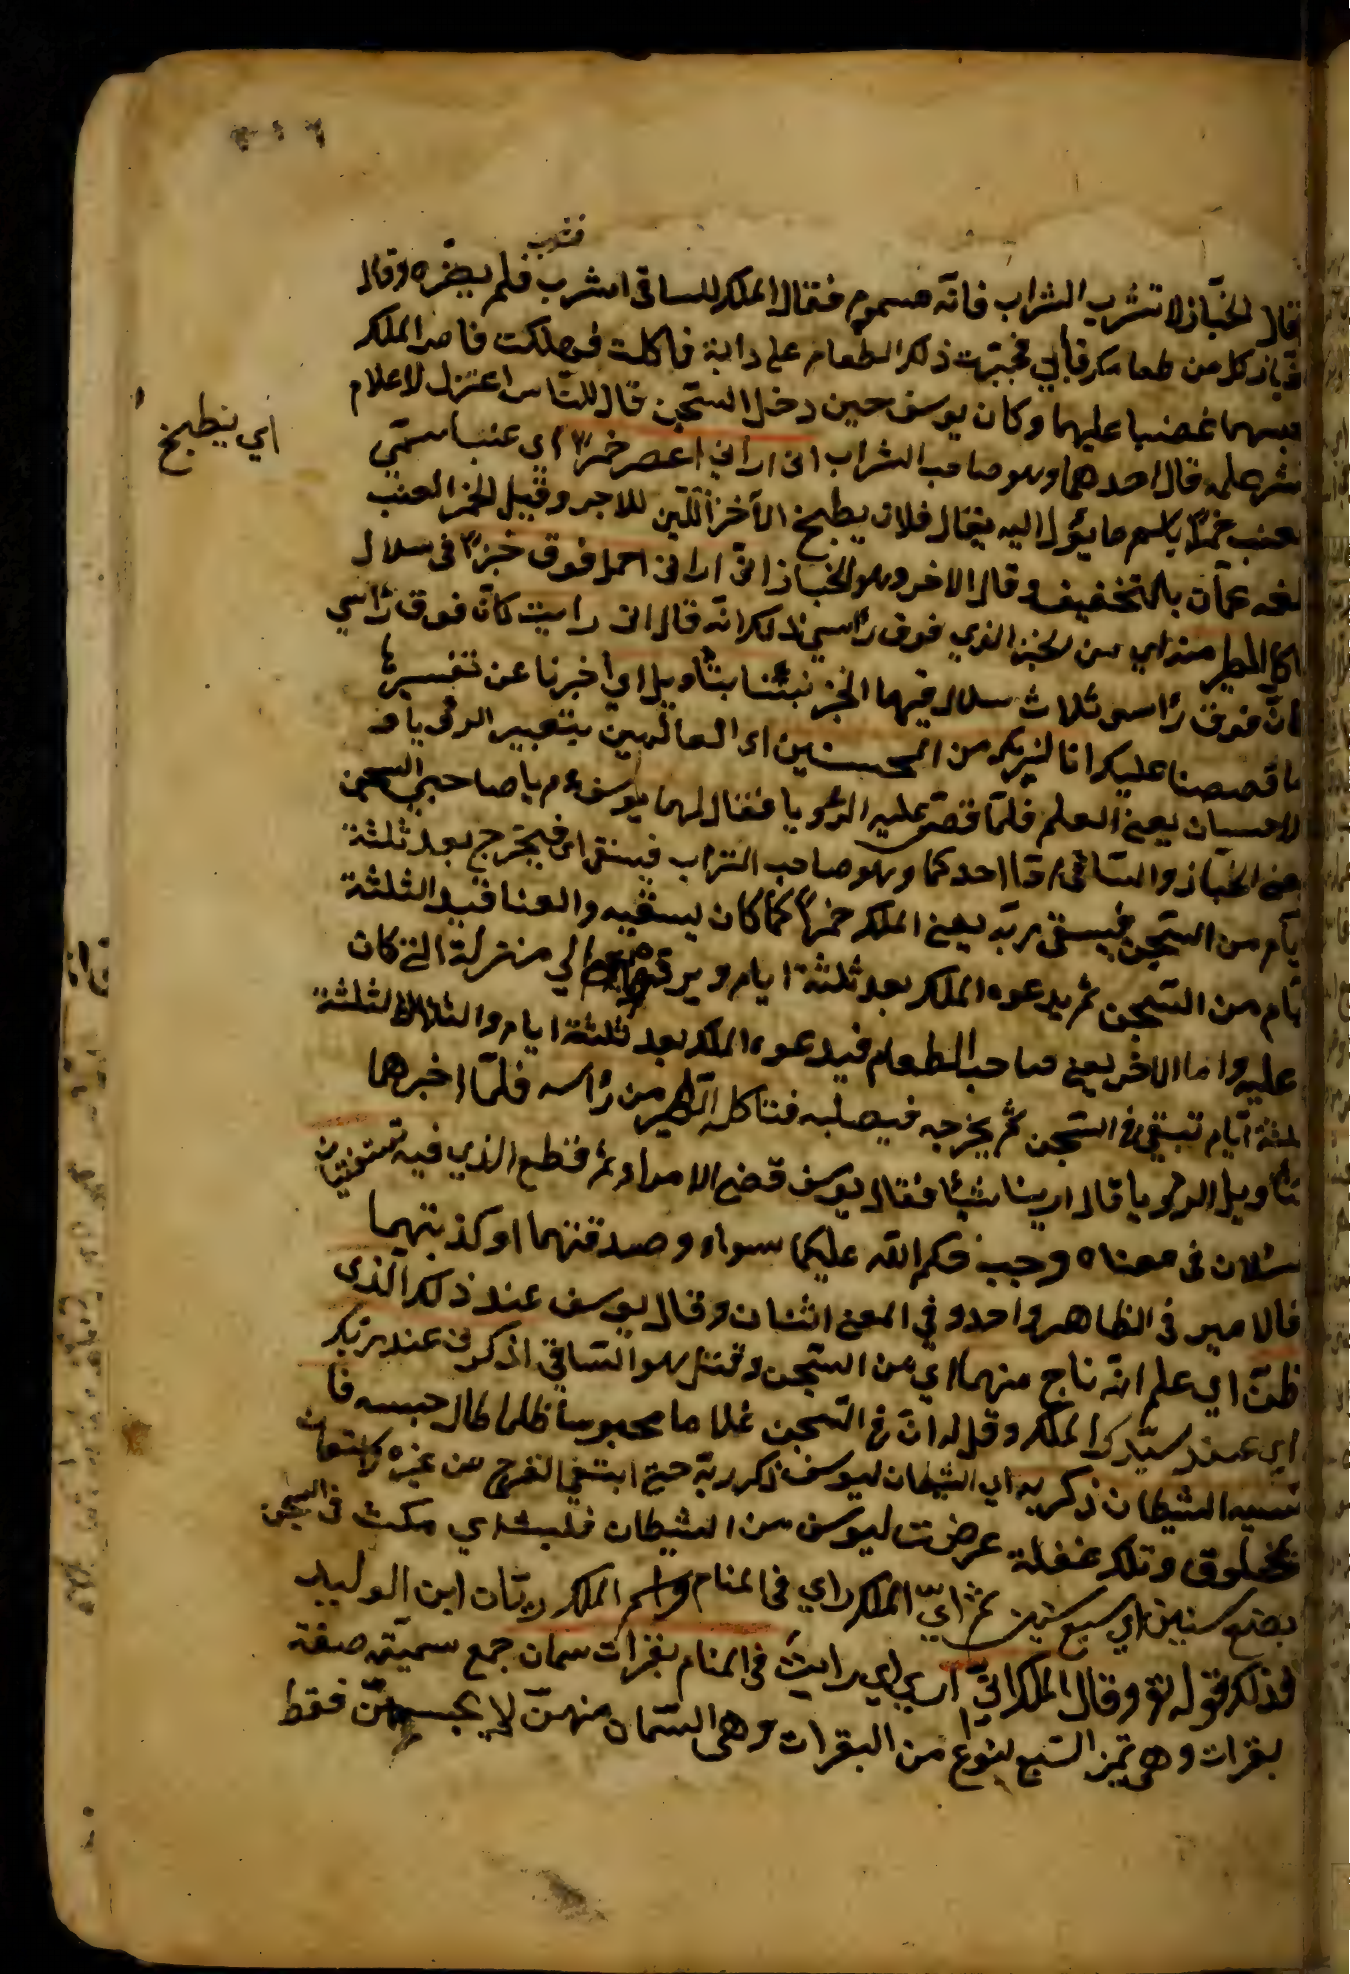 فشرب
قال الخبّاز لا تشرب الشراب فانّه مسموم فقال الملك للساقي اشرب فلم يضرّه وقال
كل من طعامك فأبي فجرّبت ذلك الطعام على دابة فاكلت فهلكت فامر الملك
غضبا عليهما وكان يوسف حين دخل السّجن قال للنّاس اعتزل لاعلام
اي ينطبخ
علمه قال احدهما وهو صاحب الشراب انى ارانى اعصر خمرًا اي عنبا سمّي
العنب خمرًا باسم ما يؤل اليه يقال فلان يطبخ الآخر اللّبن للاجر وقيل الخمر العنب
لغه عمّان بالتخفيف وقال الاخر وهو الخباز انّى ارانى احمل فوق خبزًا فى سلال
الطير منه اي من الخبز الذي فوق رأسي ذلك انّه قال انى رايت كانّ فوق رأسي
فوق رأسى ثلاث سلال فيها الخبز نبّئنا بتأويله اي اخبرنا عن تفسير
ما قصصنا عليك انا لنريك من المحسنين اى العالمين بتعبير الرؤيا
الاحسان يعنى العلم فلمّا قصّى عليه الرؤيا فقال لهما يوسف ءم يا صاحبي السجن
يعنى الخبّاز والسّاقي امّا احدكما وهو صاحب الشراب فيبقى اى فيخرج بعد ثلثة
ايّام من السّجن فيسقى ربّه يعنى الملك خمرًا كما كان يسقيه والعناقيد الثلثة
ايّام من السّجن ثم يدعوه الملك بعد ثلثة ايام ويردّه الي منزلة التى كان
عليه واما الاخر يعنى صاحب الطعام فيدعوه الملك بعد ثلثة ايام والسّلال الثلثة
ثلثة ايّام تبقى فى السّجن ثم يخرجه فيصلبه فتاكل الطّير من رأسه فلمّا اخبرهما
بتأويل الرؤيا قالا ما رينا شيأ فقال يوسف قضى الامر اى فقطع الذي فيه تستفتيان
تسئلان فى معناه وجب حكم اللّه عليكما سواء وصدقتهما او كذبتهما
فالامير فى الظاهر واحد وفي المعنى اثنان وقال يوسف عند ذلك الذى
ظنّ اي علم انّه ناج منهما اي من السّجن وقتل هو السّاقي اذكرنى عند ربّك
اي عند سيّدك الملك وقل له انّ فى السّجن غلاما محبوسا ظلما طال حبسه فا
نسيه الشيطان ذكر ربه اي الشيطان ليوسف ذكر ربّه حتى ابتغى الفرج من غيره
بمخلوق وتلك غفلة عرضت ليوسف من الشيطان فلبث اي مكث فى السّجن
بضع سنين اي سبع سنين ثم انّ الملك راي فى المنام واسم الملك ريّان ابن الوليد
فذلك قوله تع وقال الملك انّي اري اي رايت فى المنام بقرات سمان جمع سمينة صفة
بقرات وهى تميز السّبع بنوع من البقرات وهى السّمان منهنّ لا بجنسهنّ فقط